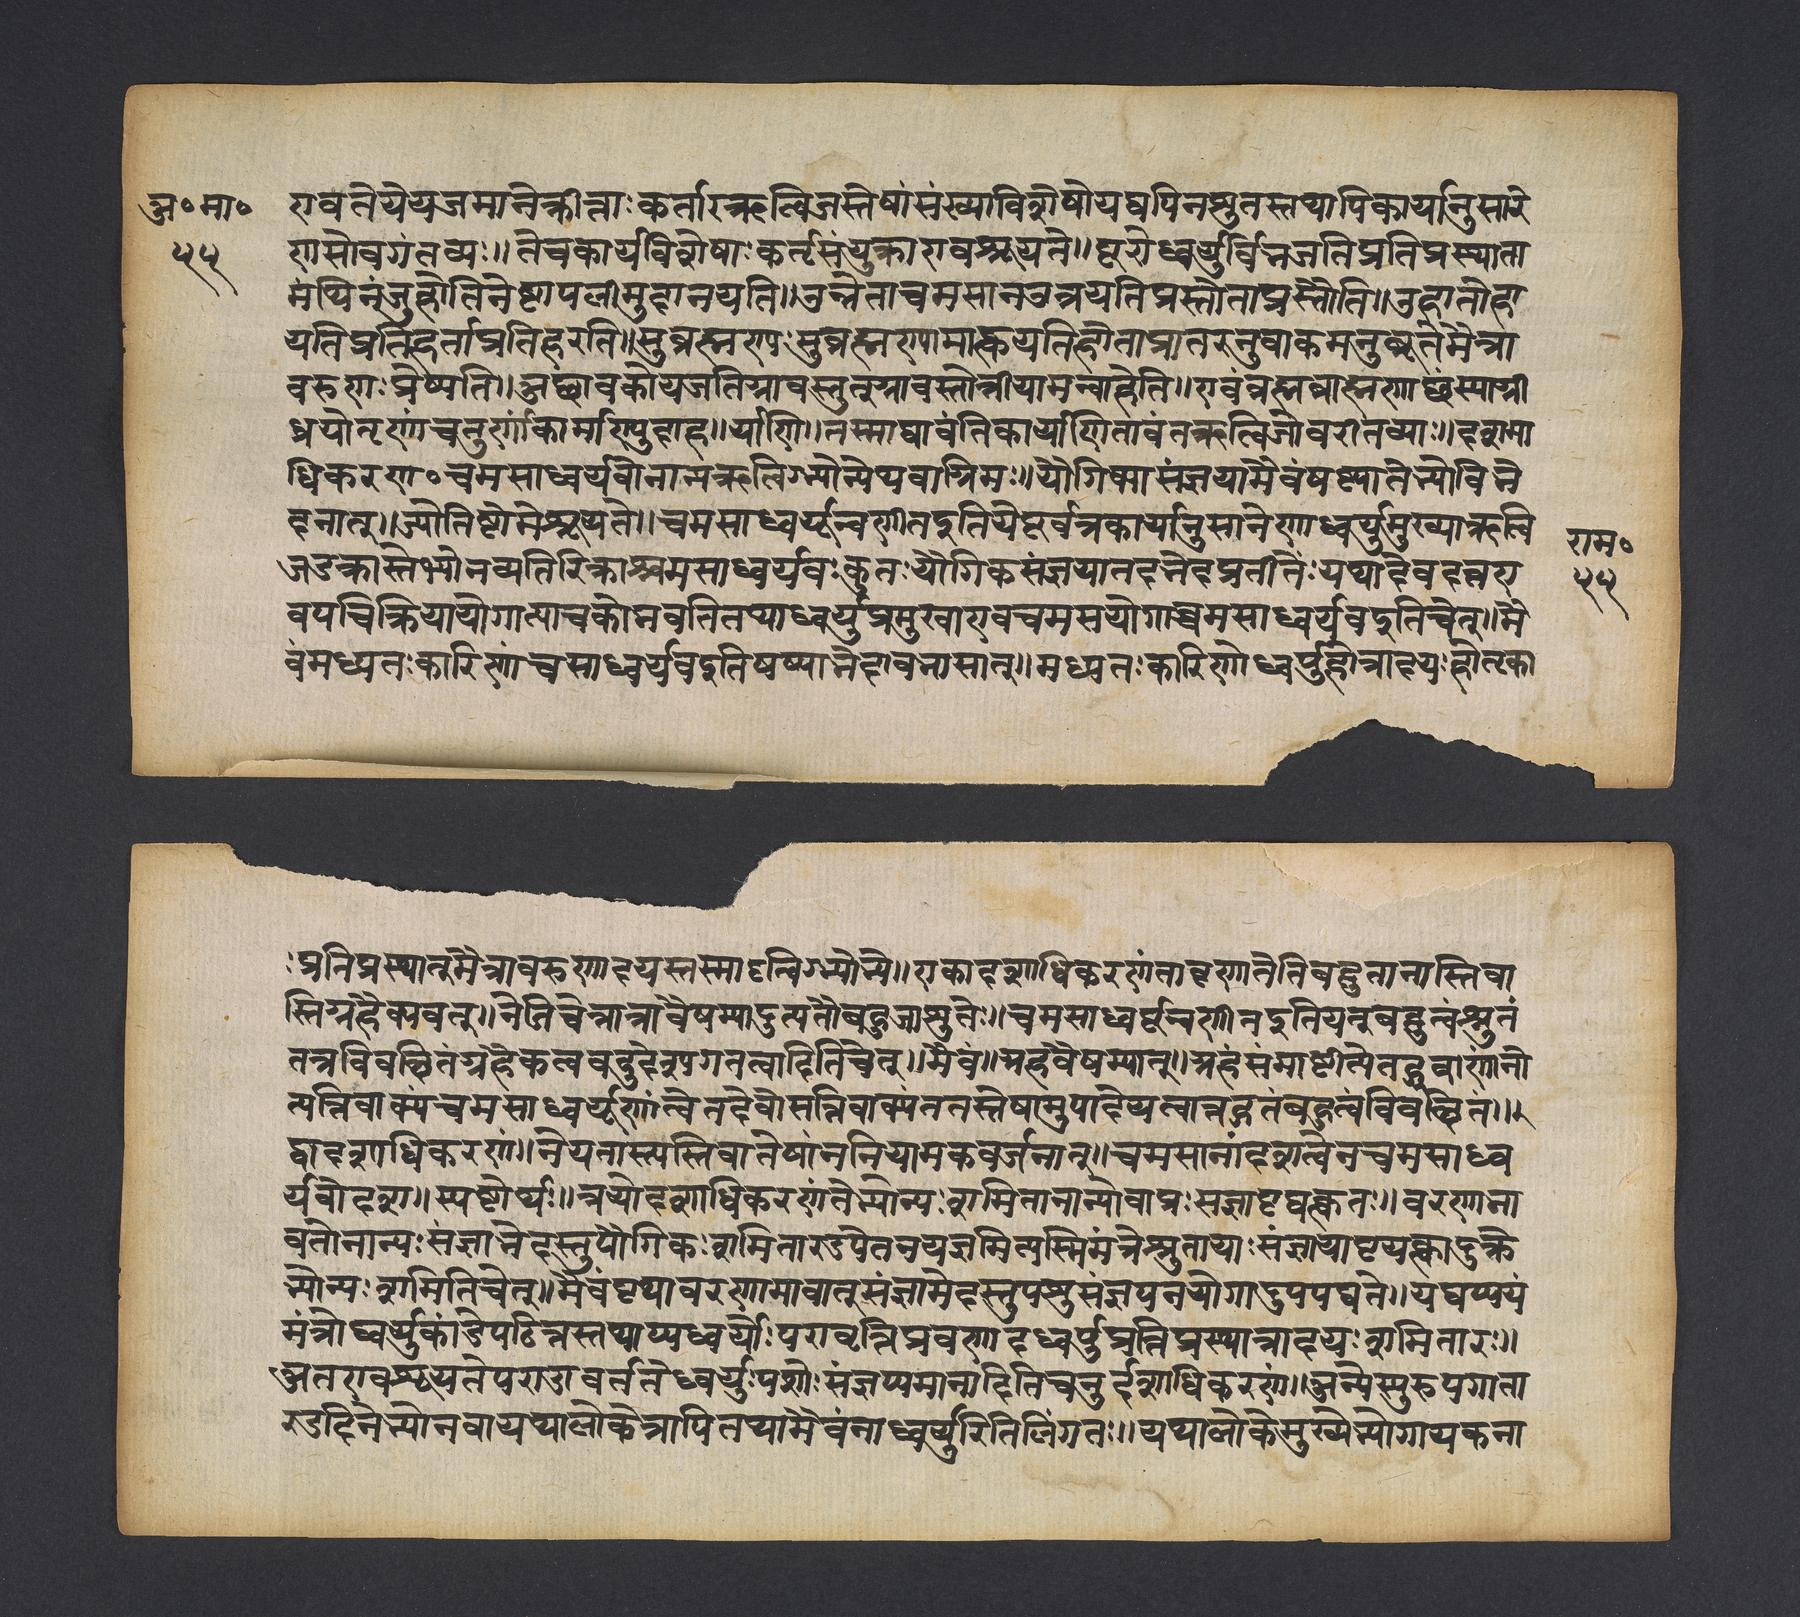 अ॰मा॰
५५
एवतेयेयजमानेक्रीताःकर्तारऋत्विजस्तेषांसंख्याविशेषोयद्यपिनश्रुतस्तथापिकार्यानुसारे
णसोवगंतव्यः॥तेचकार्यविशेषाःकर्तृसंयुक्ताएवश्रूयते॥पुरोध्वर्युर्विभजतिप्रतिप्रस्थाता
मंथिनंजुहोतिनेष्टापत्नीमुदानयति॥उन्नेताचमसानउन्नयतिप्रस्तोताप्रस्तौति॥उद्गातोद्गा
यतिप्रतिहर्ताप्रतिहरति॥सुब्रह्मण्यःसुब्रह्मण्यामाह्वयतिहोताप्रातरनुवाकमनुब्रूतेमैत्रा
वरुणःप्रेष्यति॥अछावाकोयजतिग्रावस्तुत्ग्रावस्तोत्रीयामन्वाहेति॥एवंब्रह्मब्राह्मणाछंस्याग्नी
ध्रयोतृणांचतुर्णांकार्माण्युदाह॥र्याणि॥तस्माद्यावंतिकार्याणितावंतऋत्विजोवरीतव्याः॥दशमा
धिकरण॰चमसाध्वर्यवोनान्यऋत्विग्भ्योन्येप्यवाग्रिमः॥यौगिक्यासंज्ञयामैवंषष्ट्यातेभ्योविभे
दनात्॥ज्योतिष्टोमेश्रूयते॥चमसाध्वर्यून्वृणीतइतियेपूर्वत्रकार्यानुसारेणाध्वर्युमुख्याऋत्वि
जउक्तास्तेभ्योनव्यतिरिक्ताश्चमसाध्वर्यवःकुतःयौगिकसंज्ञयातदभेदप्रतीतेःयथादेवदत्तए
वपचिक्रियायोगात्पाचकोभवतितथाध्वर्युप्रमुखाएवचमसयोगाच्चमसाध्वर्यवइतिचेत्॥मै
वंमध्यतःकारिणांचसाध्वर्यवइतिषष्ट्याभेदावभासात्॥मध्यतःकारिणोध्वर्युहोत्रादयःहोतृका
राम॰
५५
ःप्रतिप्रस्थातृमैत्रावरुणादयस्तस्मादृत्विग्भ्योन्ये॥एकादशाधिकरणंतावृणातेतिबहुतानास्तिवा
स्तिग्रहैक्यवत्॥नेतिचेन्नात्रवैषम्यादुत्पत्तौबहुताश्रुतेः॥चमसाध्वर्यून्वृणीतइतियत्बहुत्वंश्रुतं
तन्नविवक्षितंग्रहैकत्ववदुद्देश्यगतत्वादितिचेत्॥मैवं॥ग्रहवैषम्यात्॥ग्रहंसंमार्ष्टीत्येतद्ग्रहाणांनो
त्पत्तिवाक्यंचमसाध्वर्यूणांत्वेतदेवोत्पत्तिवाक्यंततस्तेषामुपादेयत्वात्तद्गतंबहुत्वंविवक्षितं॥
द्वादशाधिकरणं॥नेयत्तास्त्यस्तिवातेषांननियामकवर्जनात्॥चमसानांदशत्वेनचमसाध्व
र्यवोदश॥स्पष्टोर्थः॥त्रयोदशाधिकरणंतेभ्योन्यःशमितानान्योवाग्रःसंज्ञापृथक्त्वतः॥वरणाभा
वतोनान्यःसंज्ञाभेदस्तुयौगिकःशमितारउपेतनयज्ञमित्यस्मिमंत्रेश्रुतायाःसंज्ञायापृथक्त्वादुक्ते
भ्योन्यःशमितेतिचेत्॥मैवंपृथग्वरणाभावात्संज्ञाभेदस्तुपशुसंज्ञपनयोगादुपपद्यते॥यद्यप्ययं
मंत्रोध्वर्युकांडेपठितस्तथाप्यध्वर्योःपरावृत्तिश्रवणादध्वर्युप्रतिप्रस्थात्रादयःशमितारः॥
अतएवश्रूयतेपराङावर्ततेध्वर्युःपशोःसंज्ञप्यमानादितिचतुर्दशाधिकरणं॥अन्येस्युरुपगाता
रउदितेभ्योनवायथालोकेत्रापितथामैवंनाध्वर्युरितिलिंगतः॥यथालोकेमुख्येभ्योगायकेभा